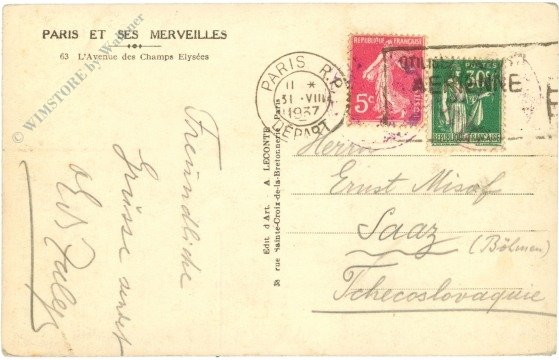 PARIS ET SES MERVEILLES
63 L'Avenue des Champs Elysées
© WIMSTORE by Wallner
PARIS R.P.
11 *
31 · VIII
1937
DÉPART
REPUBLIQUE FRANÇAISE
5c
POSTES
30c
REPUBLIQUE FRANÇAISE
AERIENNE
Freundliche
Grüsse sendet
Edit d'Art. A LECONTE
38 rue Sainte-Croix-de-la-Bretonnerie Paris
Herrn
Ernst
Saaz
(Böhmen)
Tchecoslovaquie